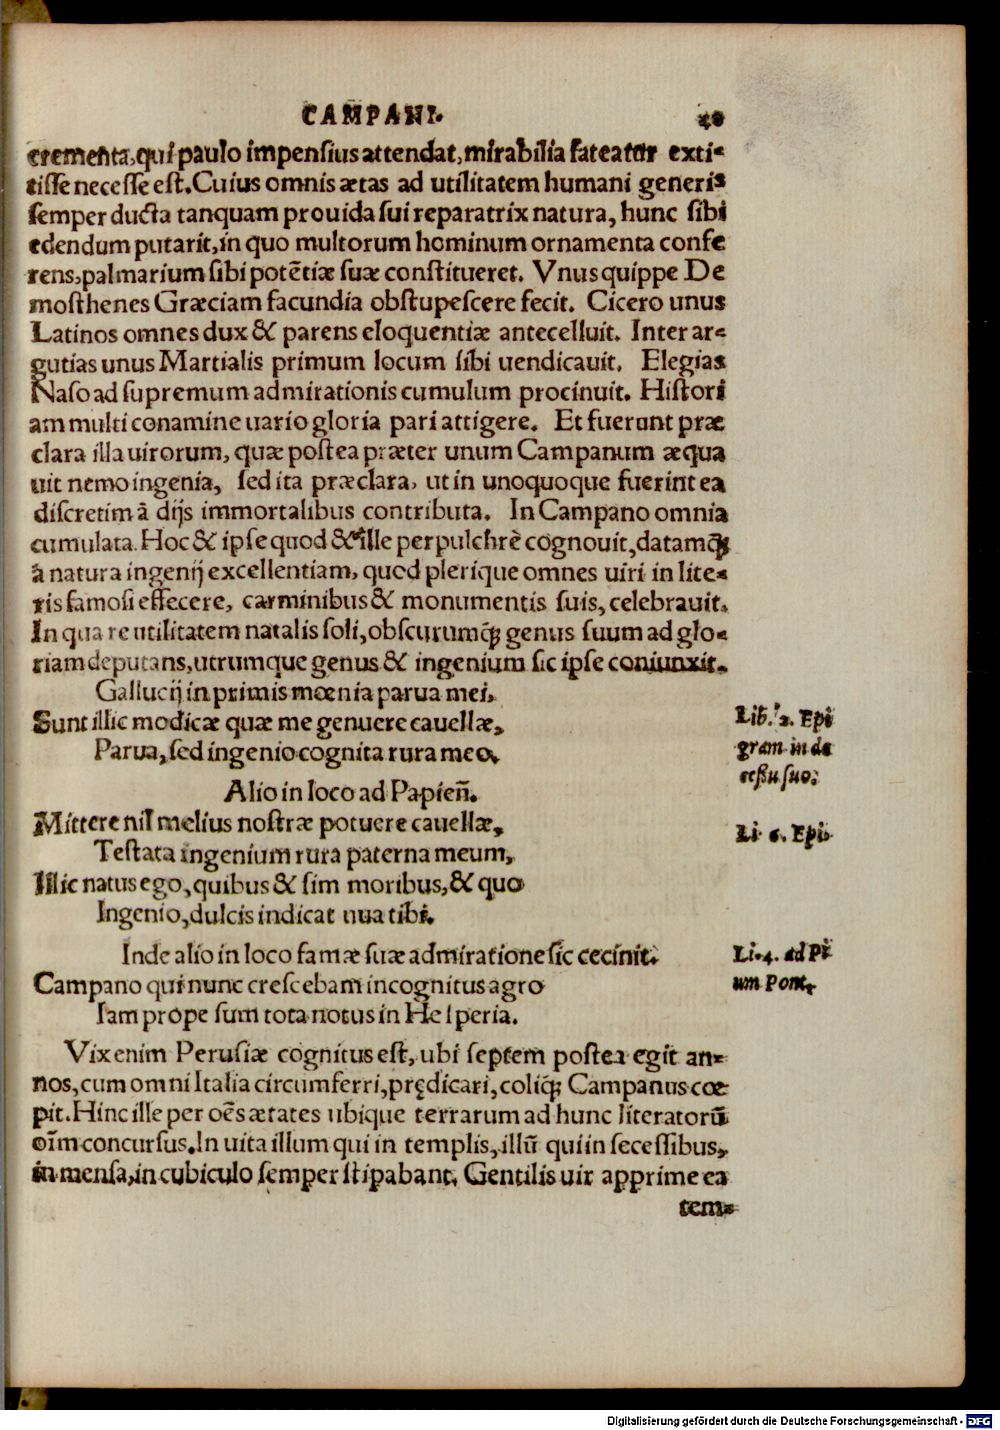 CAMPANI.
crementa, qui paulo impensius attendat, mirabilia fateatur exti-
tisse necesse est. Cuius omnis ætas ad utilitatem humani generis
semper ducta tanquam prouida sui reparatrix natura, hunc sibi
edendum putarit, in quo multorum hominum ornamenta confe
rens, palmarium sibi potētiæ suæ constitueret. Vnus quippe De
mosthenes Græciam facundia obstupescere fecit. Cicero unus
Latinos omnes dux & parens eloquentiæ antecelluit. Inter ar-
gutias unus Martialis primum locum sibi uendicauit. Elegias
Naso ad supremum admirationis cumulum procinuit. Histori
am multi conamine uario gloria pari attigere. Et fuerunt præ
clara illa uirorum, quæ postea præter unum Campanum æqua
uit nemo ingenia, sed ita præclara, ut in unoquoque fuerint ea
discretim à dijs immortalibus contributa. In Campano omnia
cumulata. Hoc & ipse quod & ille perpulchrè cognouit, datamq́;
à natura ingenij excellentiam, quod plerique omnes uiri in lite-
ris famosi effecere, carminibus & monumentis suis, celebrauit.
In qua re utilitatem natalis soli, obscurumq́; genus suum ad glo-
riam deputans, utrumque genus & ingenium sic ipse coniunxit.
Gallucij in primis mœnia parua mei.
Sunt illic modicæ quæ me genuere cauellæ,
Parua, sed ingenio cognita rura meo.
Lib. 2. Epi
gram in de
cessu suo.
Alio in loco ad Papieñ.
Mittere nil melius nostræ potuere cauellæ,
Testata ingenium rura paterna meum,
Illic natus ego, quibus & sim moribus, & quo
Ingenio, dulcis indicat uua tibi.
Li. 6. Epi.
Inde alio in loco famæ suæ admiratione sic cecinit.
Campano qui nunc crescebam incognitus agro
Iam prope sum tota notus in Hesperia.
Li. 4. ad Pi
um Pont.
Vix enim Perusiæ cognitus est, ubi septem postea egit an-
nos, cum omni Italia circumferri, prędicari, coliq́; Campanus cœ
pit. Hinc ille per oēs ætates ubique terrarum ad hunc literatorū
oīm concursus. In uita illum qui in templis, illū qui in secessibus,
in mensa, in cubiculo semper stipabant. Gentilis uir apprime ea
tem-
Digitalisierung gefördert durch die Deutsche Forschungsgemeinschaft - DFG